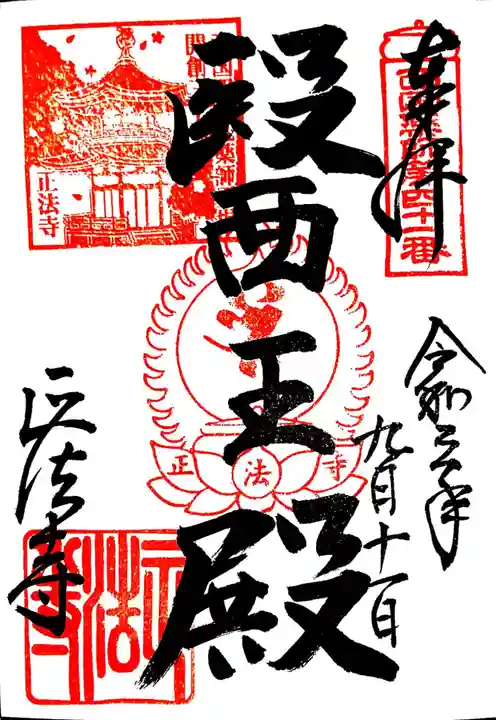 奉拝
西国薬師第四十一番
令和三年
九月十一日
醫王殿
正法寺
正法寺
開創
薬師
正法寺
正法寺